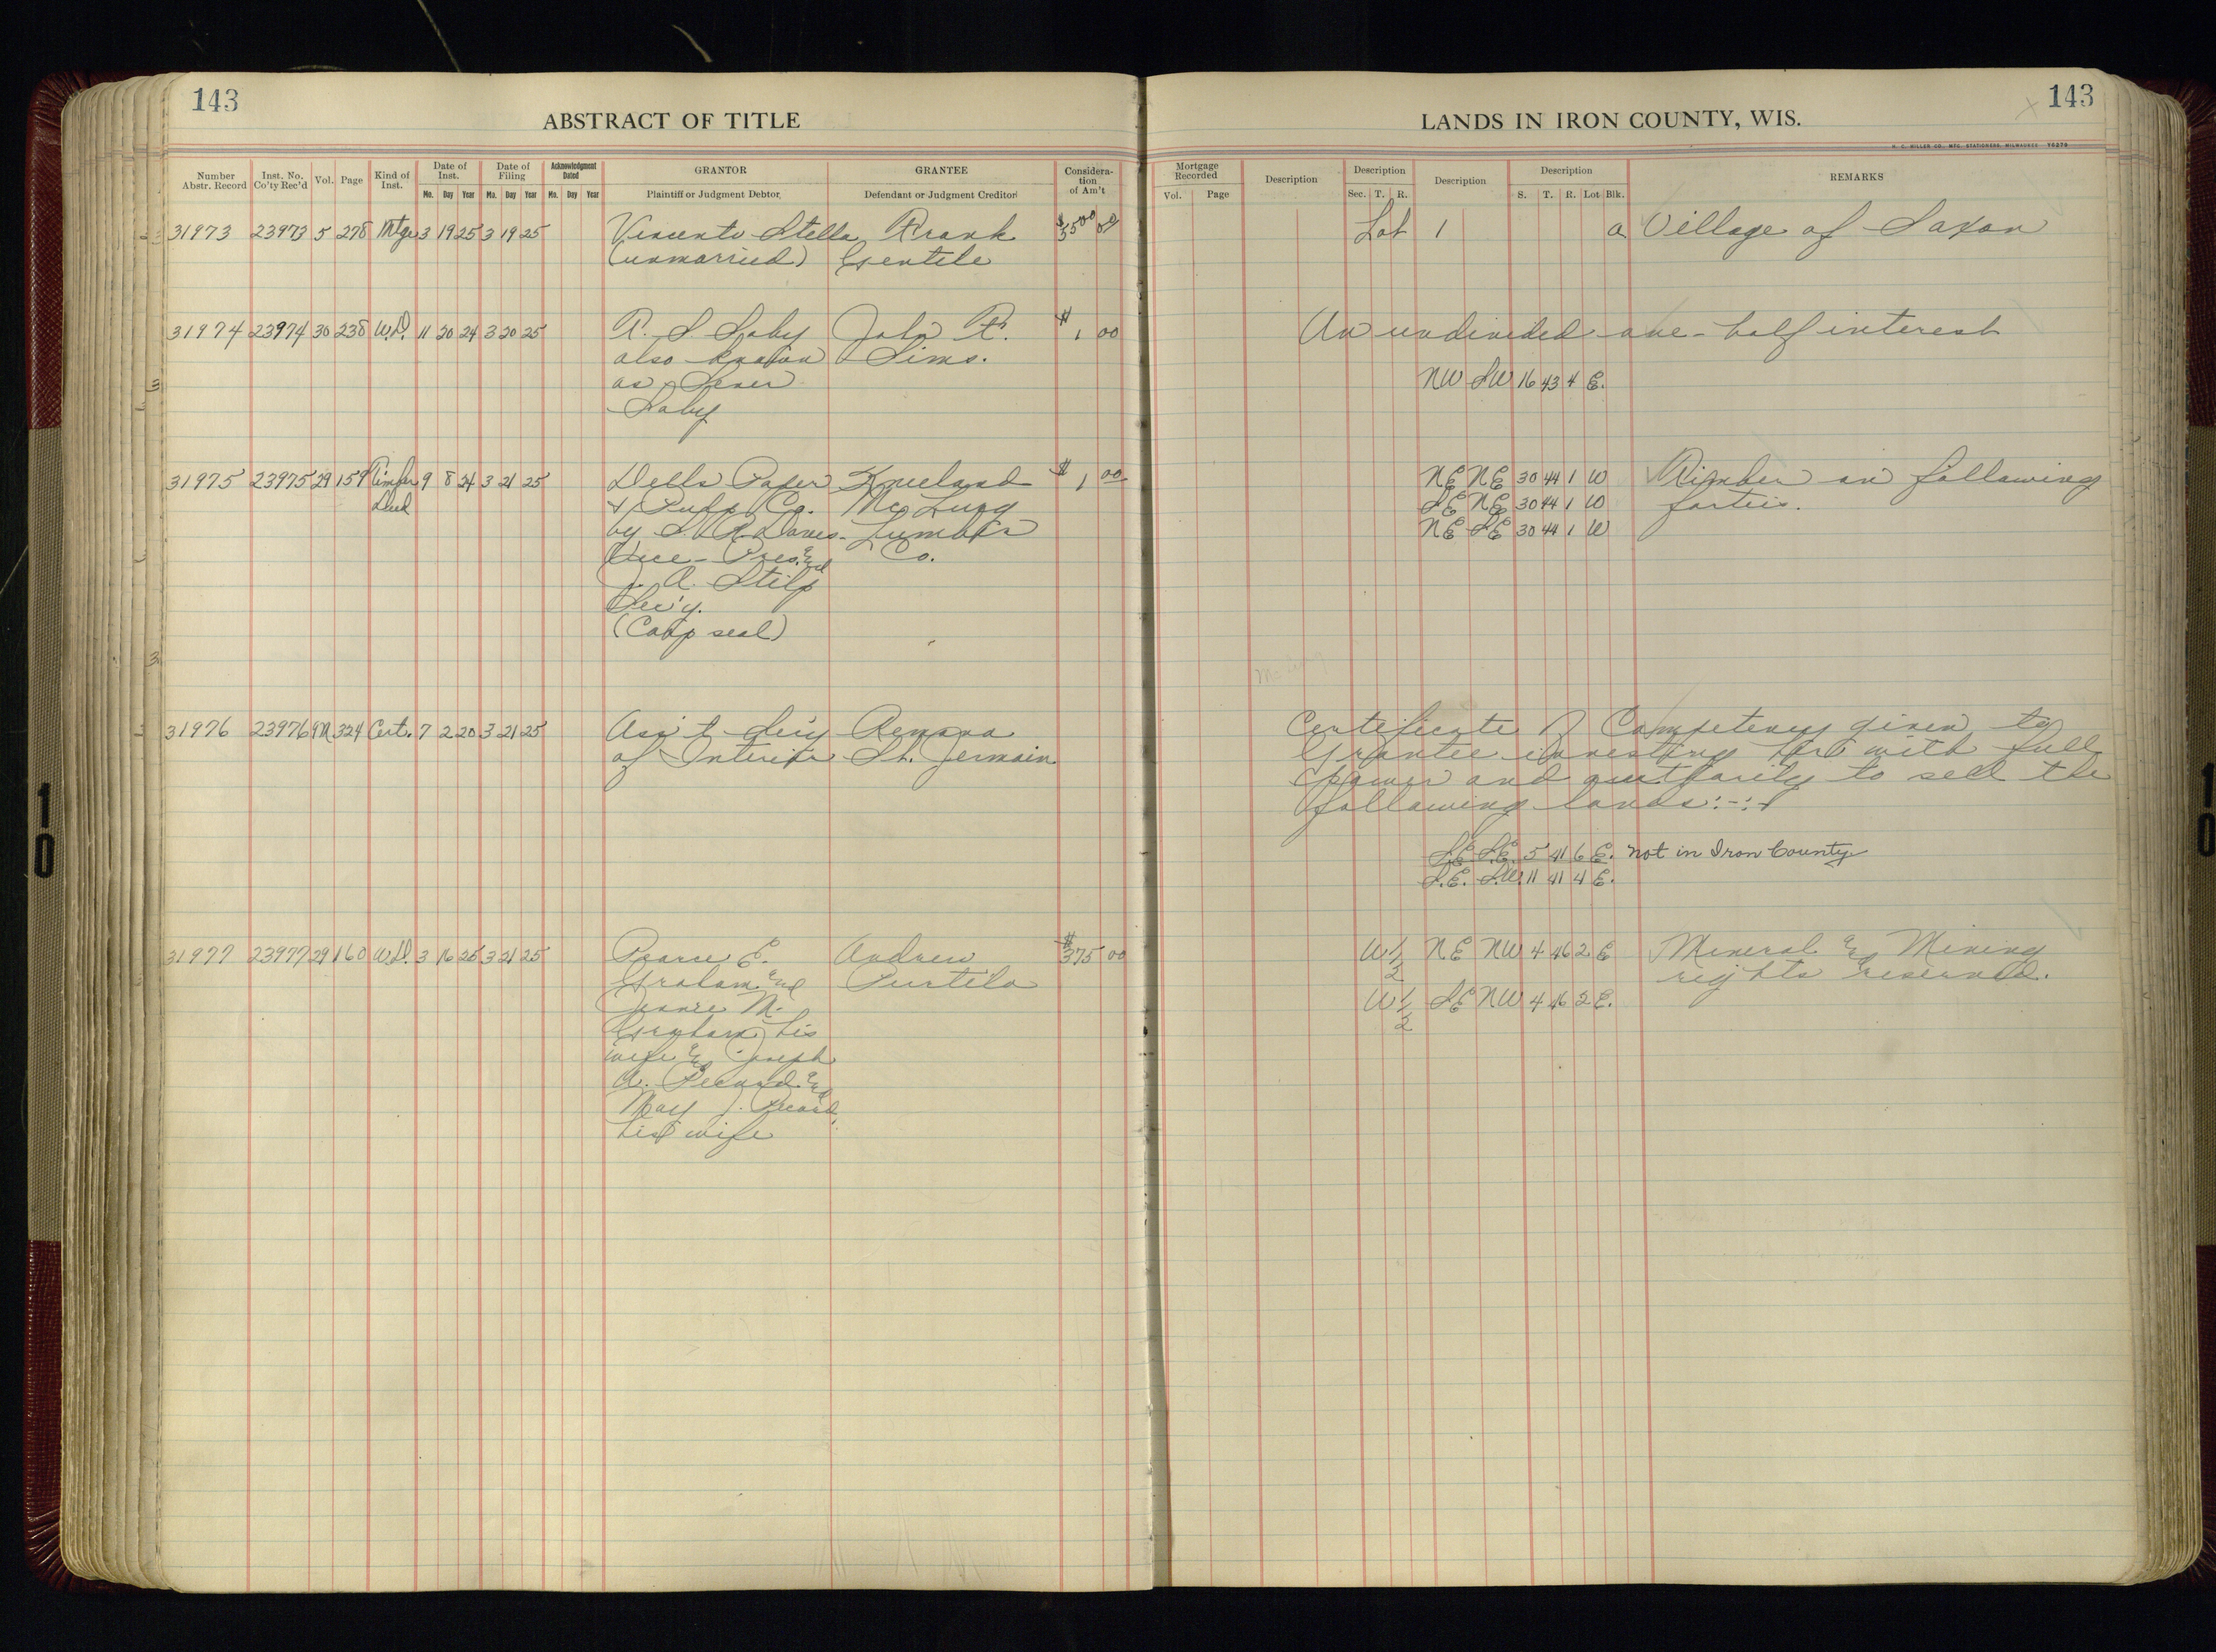 143
ABSTRACT OF TITLE
Number Abstr. Record
Inst. No. Co'ty Rec'd
Vol.
Page
Kind of Inst.
Date of Inst.
Mo. Day Year
Date of Filing
Mo. Day Year
Acknowledgment Dated
Mo. Day Year
GRANTOR
Plaintiff or Judgment Debtor
GRANTEE
Defendant or Judgment Creditor
Consideration of Am't
31973 23973 5 278 Mtge 3 19 25 3 19 25 Vincento Stella Frank $3500 00
(unmarried) Gentile
31974 23974 30 238 W.D. 11 20 24 3 20 25 John R. $1 00
also known Sims.
as
31975 23975 29 159 Timber 9 8 24 3 21 25 Dells Paper Kneeland $1 00
Deed & Pulp Co. McLurg
by Lumber
Vice-Pres. and Co.
J. A. Stilp
Sec'y.
(Corp seal)
31976 23976 9M 324 Cert. 7 2 20 3 21 25 Ass't Sec'y
of Interior St. Jermain
31977 23977 29 160 W.D. 3 16 25 3 21 25 E. Andrew $375 00
Graham and Purtilo
Jennie M.
Graham, his
wife and Joseph
A. and
May J.
his wife
LANDS IN IRON COUNTY, WIS.
143
H. C. MILLER CO., MFG. STATIONERS, MILWAUKEE
Mortgage Recorded
Vol. Page
Description
Description
Sec. T. R.
Description
Description
S. T. R. Lot Blk.
REMARKS
Lot 1 a Village of Saxon
An undivided one-half interest
NW SW 16 43 4 E.
NE NE 30 44 1 W Timber on following
SE NE 30 44 1 W forties.
NE SE 30 44 1 W
Certificate of Competency given to
Grantee investing her with full
power and authority to sell the
following lands:-:-
S.E. S.E. 5 41 6 E. not in Iron County
S.E. S.W. 11 41 4 E.
W 1/2 NE NW 4 46 2 E Mineral and Mining
rights reserved.
W 1/2 SE NW 4 46 2 E.
10
10